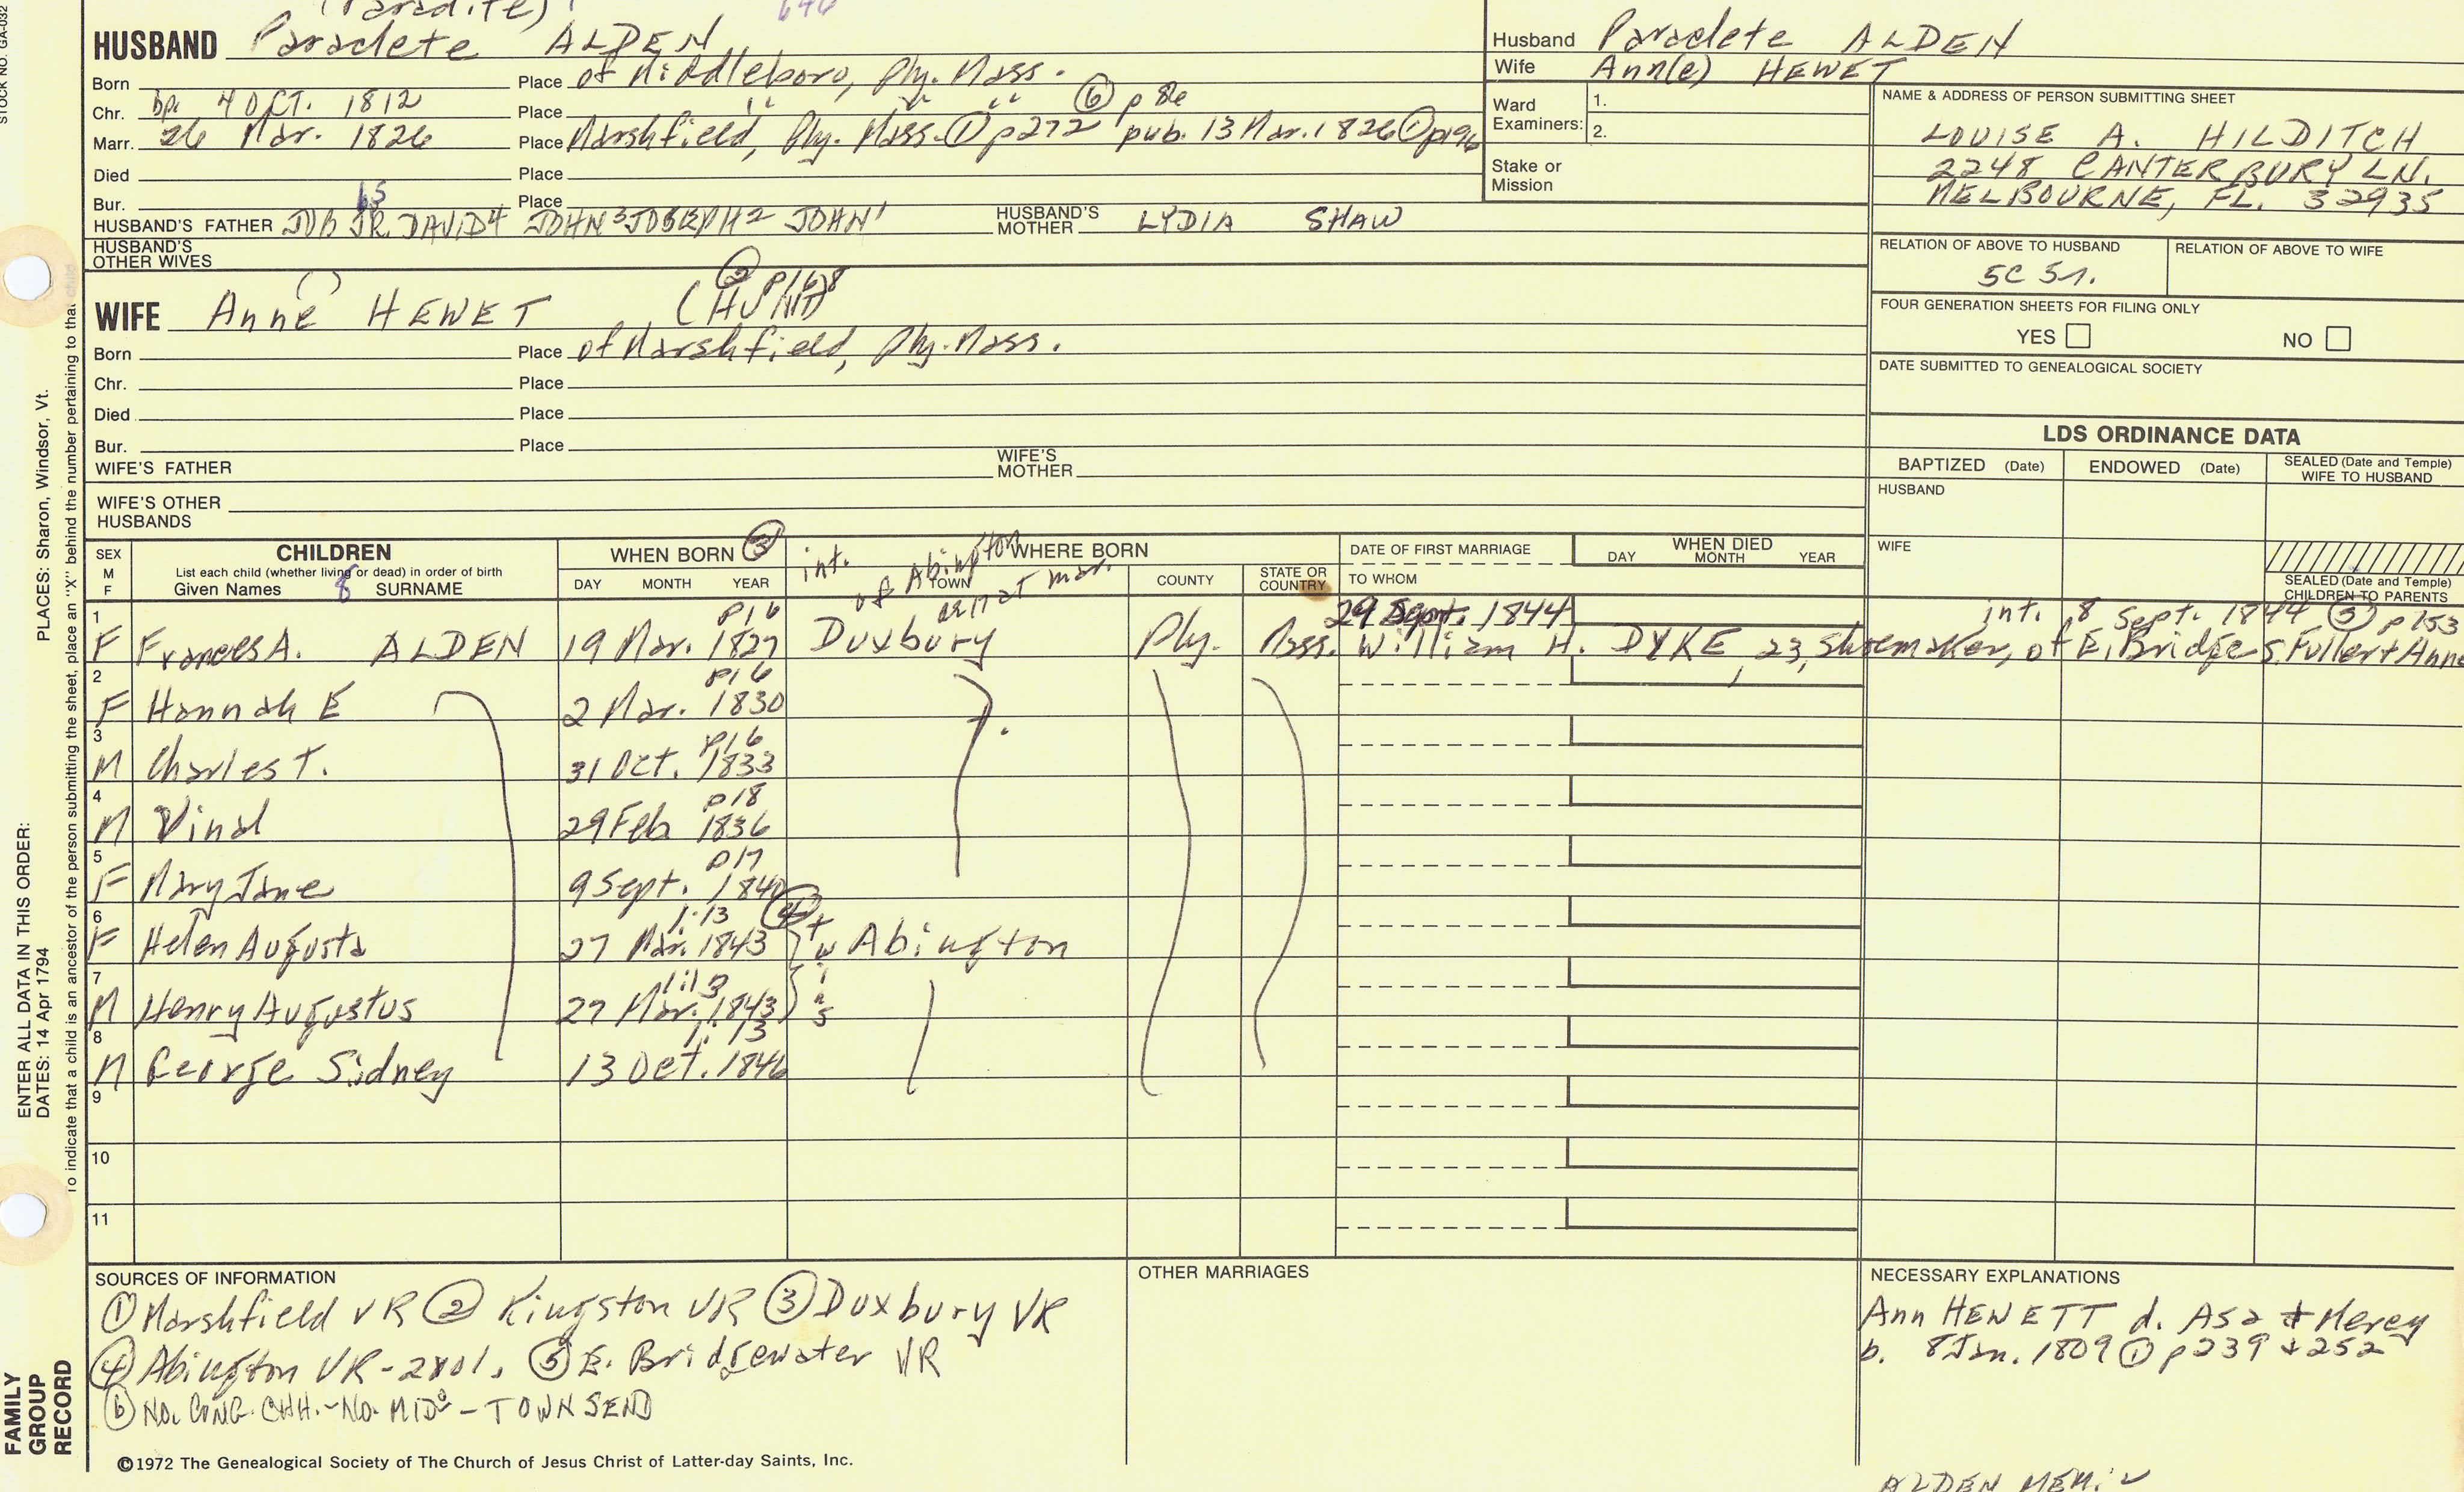 (Paradite)
646
HUSBAND Paraclete ALDEN
Born Place of Middleboro, Ply. Mass.
Chr. bp. 4 OCT. 1812 Place " " " ⑥ p 86
Marr. 26 Mar. 1826 Place Marshfield, Ply. Mass. ① p272 pub. 13 Mar. 1826 ① p196
Died Place
Bur. Place
HUSBAND'S FATHER JOB JR. DAVID4 JOHN3 JOSEPH2 JOHN1 HUSBAND'S MOTHER LYDIA SHAW
HUSBAND'S OTHER WIVES
② p168
WIFE Anne HEWET (HUNT)
Born Place of Marshfield, Ply. Mass.
Chr. Place
Died Place
Bur. Place
WIFE'S FATHER WIFE'S MOTHER
WIFE'S OTHER HUSBANDS
Husband Paraclete ALDEN
Wife Ann(e) HEWET
Ward Examiners: 1.
2.
Stake or Mission
NAME & ADDRESS OF PERSON SUBMITTING SHEET
LOUISE A. HILDITCH
2248 CANTERBURY LN.
MELBOURNE, FL. 32935
RELATION OF ABOVE TO HUSBAND RELATION OF ABOVE TO WIFE
5C 5r.
FOUR GENERATION SHEETS FOR FILING ONLY
YES NO
DATE SUBMITTED TO GENEALOGICAL SOCIETY
LDS ORDINANCE DATA
BAPTIZED (Date) ENDOWED (Date) SEALED (Date and Temple) WIFE TO HUSBAND
HUSBAND
WIFE
SEALED (Date and Temple) CHILDREN TO PARENTS
SEX M F CHILDREN WHEN BORN ③ WHERE BORN DATE OF FIRST MARRIAGE WHEN DIED
List each child (whether living or dead) in order of birth
Given Names SURNAME DAY MONTH YEAR TOWN COUNTY STATE OR COUNTRY TO WHOM DAY MONTH YEAR
8
int. of Abington at mar.
1 p16 29 Sept. 1844 int. 8 Sept. 1844 ⑤ p153
F Frances A. ALDEN 19 Mar. 1827 Duxbury Ply. Mass. William H. DYKE, 23, shoemaker, of E. Bridge S. Fuller + Anne
2 p16
F Hannah E 2 Mar. 1830
3 p16
M Charles T. 31 Oct. 1833
4 p18
M Vinal 29 Feb 1836
5 p17
F Mary Jane 9 Sept. 1840
6 1:13 ④
F Helen Augusta 27 Mar. 1843 } twins Abington
7 1:13
M Henry Augustus 27 Mar. 1843
8 1:13
M George Sidney 13 Oct. 1846
9
10
11
SOURCES OF INFORMATION
① Marshfield VR ② Kingston VR ③ Duxbury VR
④ Abington VR - 2vol. ⑤ E. Bridgewater VR
⑥ NO. CONG. CHH. - NO. MIDo - TOWNSEND
OTHER MARRIAGES
NECESSARY EXPLANATIONS
Ann HEWETT d. Asa + Mercy
b. 8 Jan. 1809 ① p239 + 252
©1972 The Genealogical Society of The Church of Jesus Christ of Latter-day Saints, Inc.
ALDEN MEM. V
STOCK NO. GA-032
PLACES: Sharon, Windsor, Vt.
ENTER ALL DATA IN THIS ORDER:
DATES: 14 Apr 1794
To indicate that a child is an ancestor of the person submitting the sheet, place an "X" behind the number pertaining to that child
FAMILY GROUP RECORD